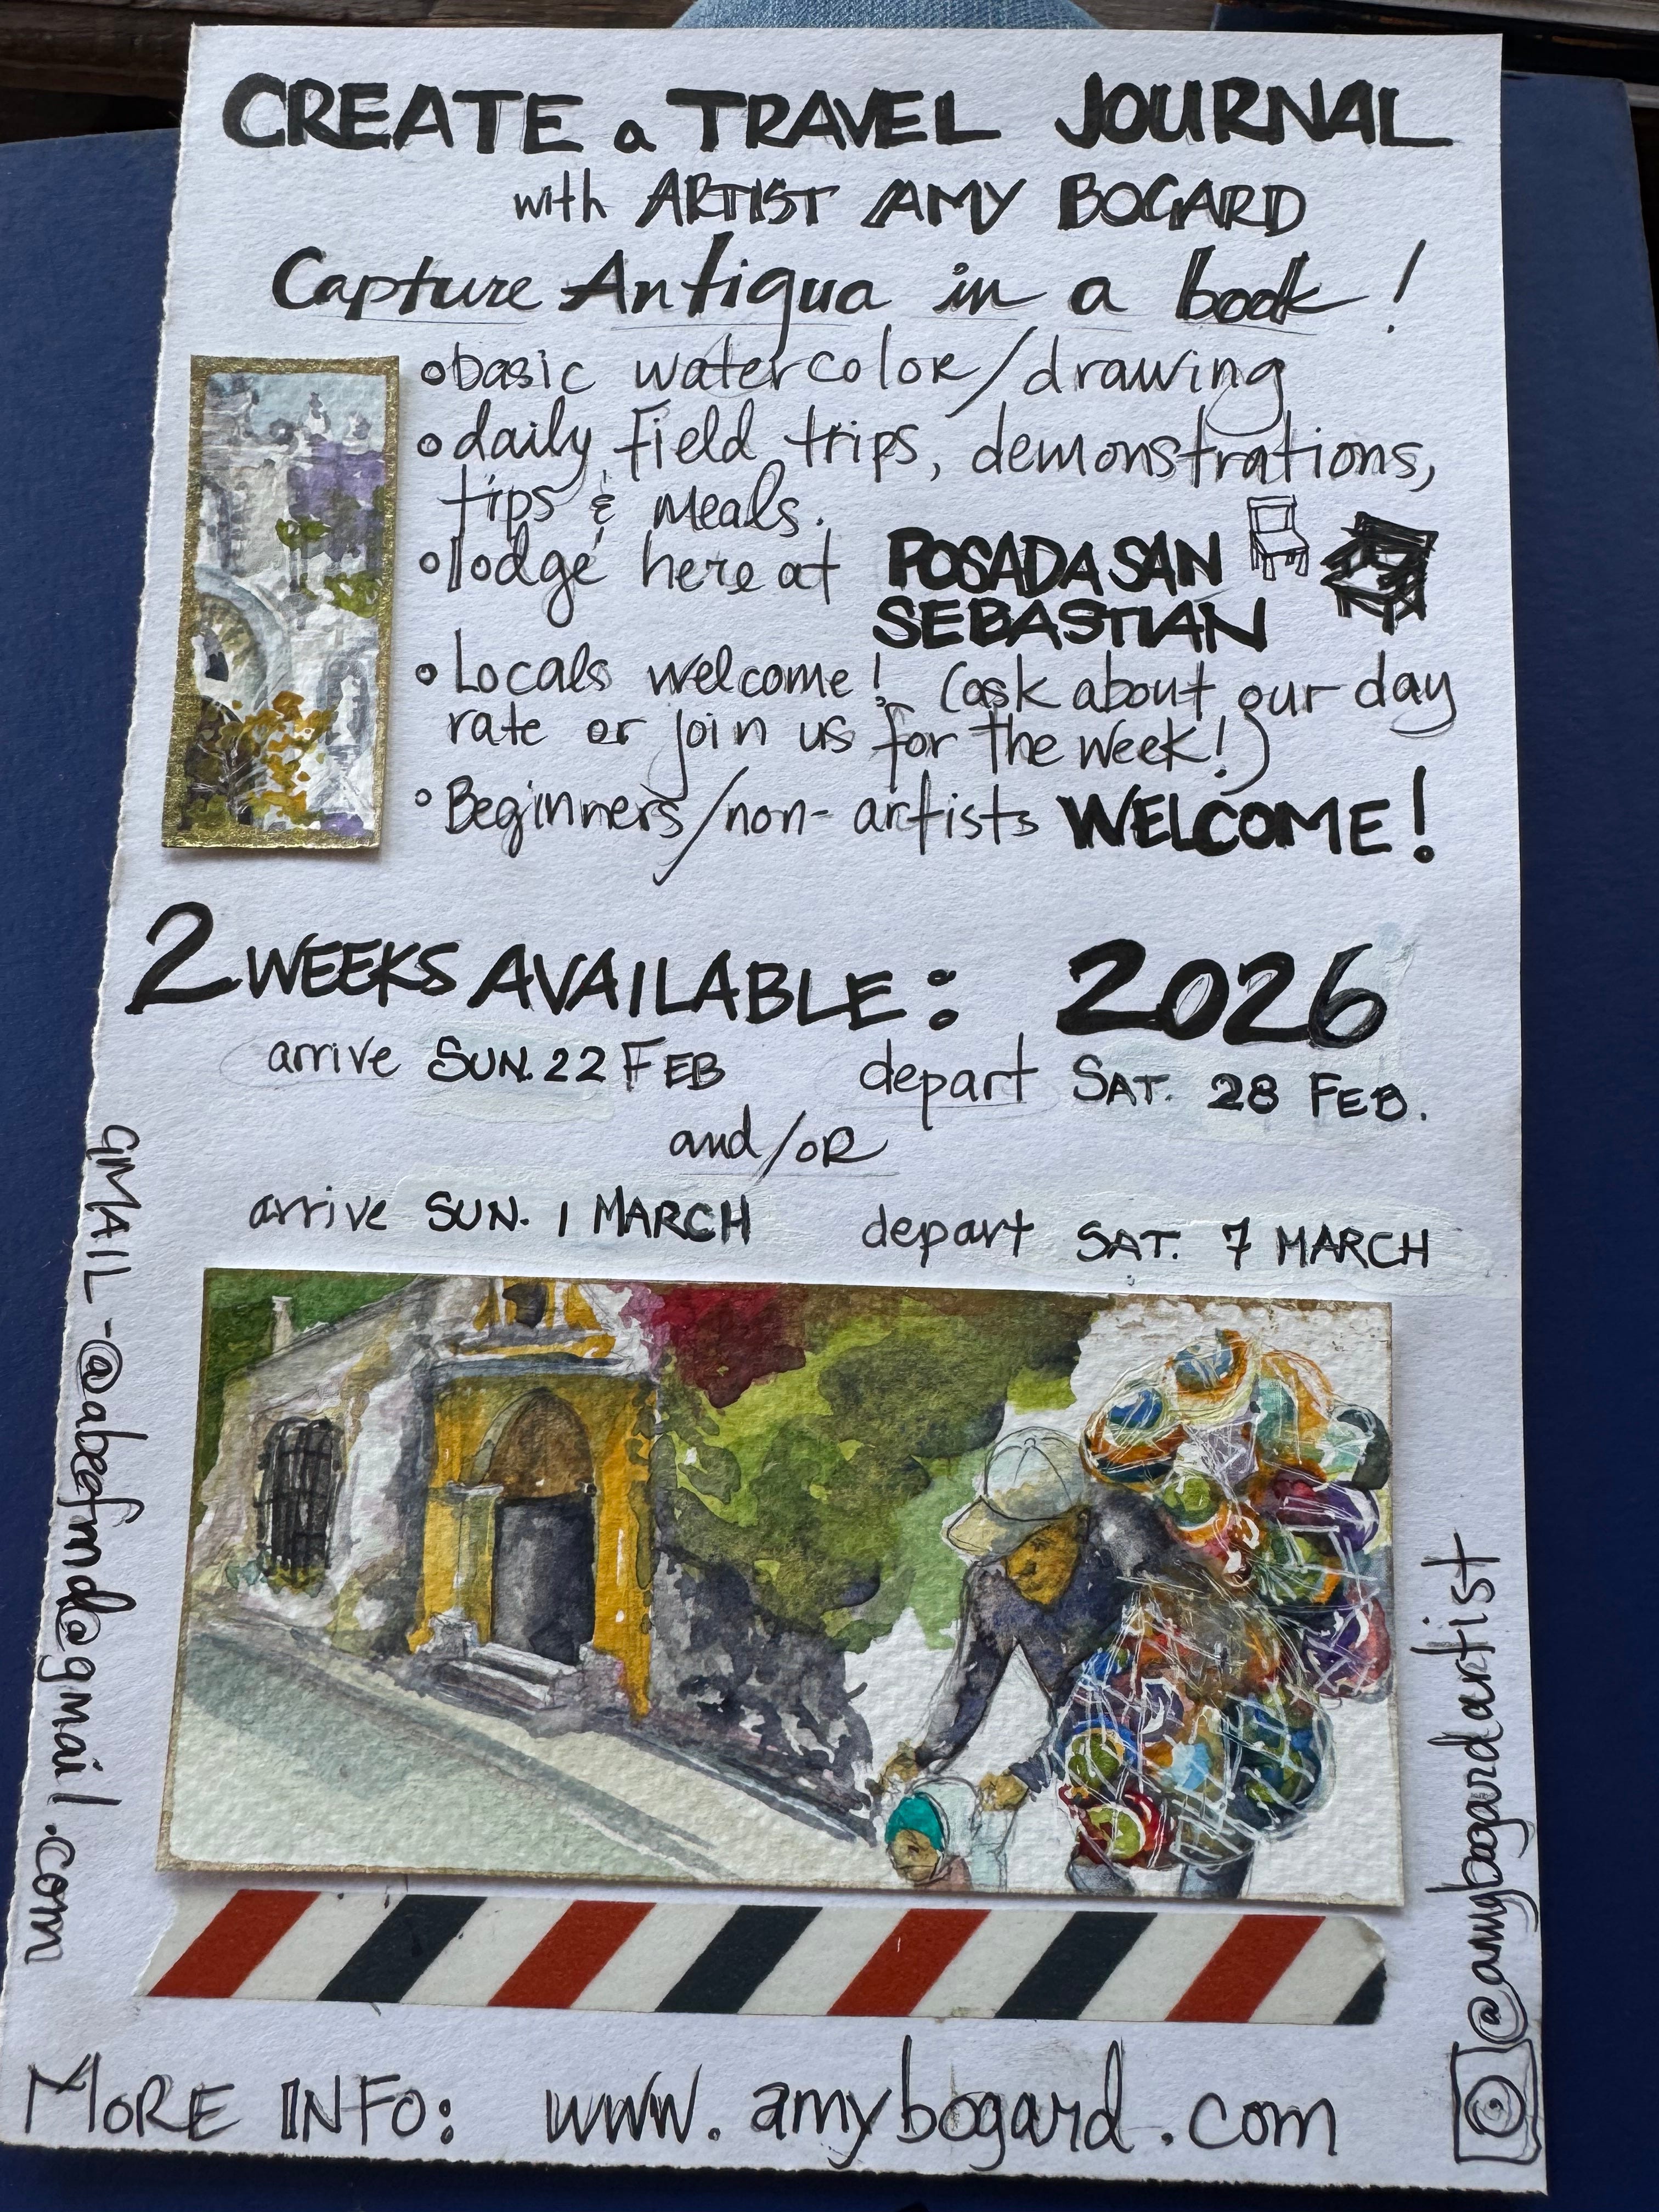 CREATE a TRAVEL JOURNAL
with ARTIST AMY BOGARD
Capture Antigua in a book!
• basic watercolor/drawing
• daily field trips, demonstrations,
tips & meals.
• lodge here at POSADA SAN
SEBASTIAN
• Locals welcome! (ask about our day
rate or join us for the week!)
• Beginners/non-artists WELCOME!
2 WEEKS AVAILABLE: 2026
arrive SUN. 22 FEB depart SAT. 28 FEB.
and/OR
arrive SUN. 1 MARCH depart SAT. 7 MARCH
GMAIL - @abeefrnd@gmail.com
@amybogardartist
MORE INFO: www.amybogard.com